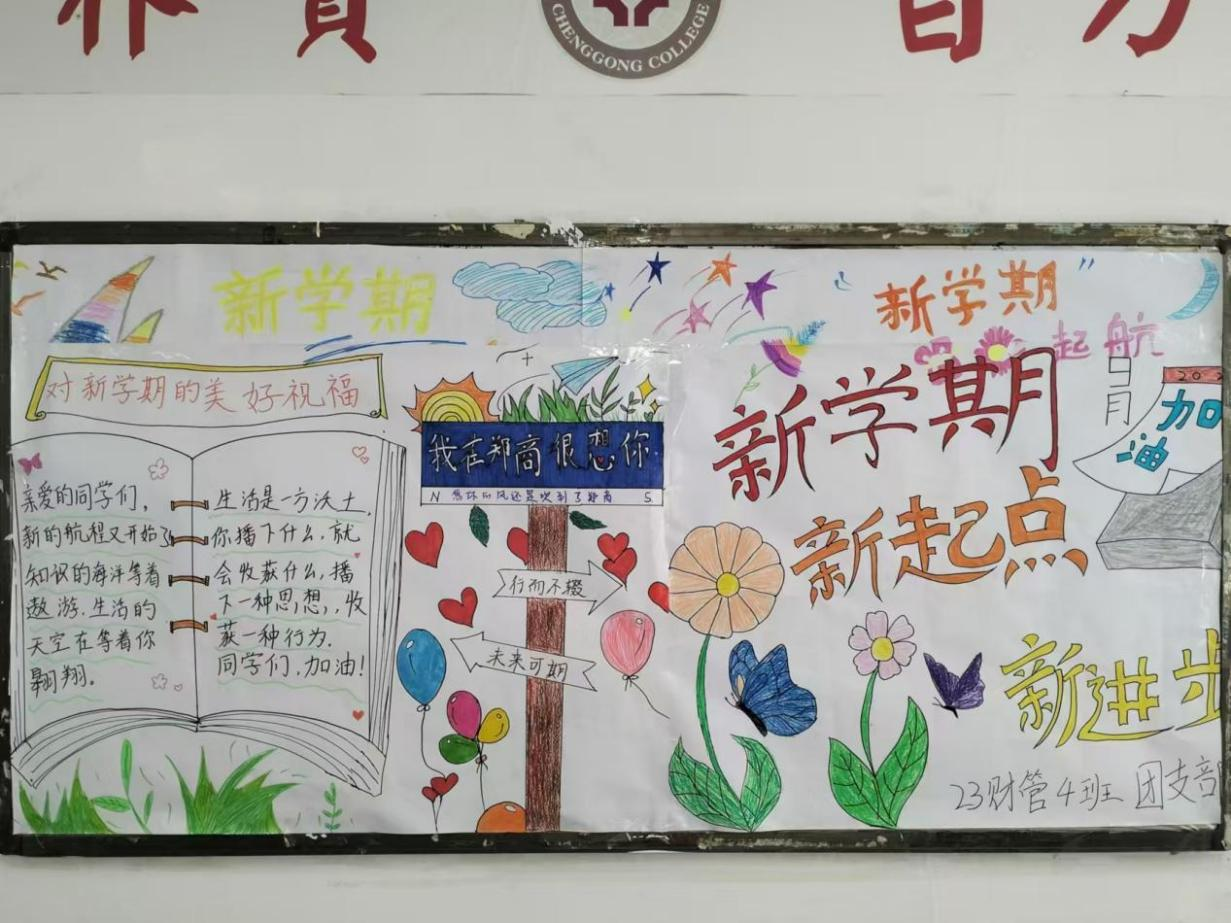 CHENGGONG COLLEGE
新学期
对新学期的美好祝福
亲爱的同学们,
新的航程又开始了
知识的海洋等着
遨游.生活的
天空在等着你
翱翔。
生活是一方沃土,
你播下什么.就
会收获什么,播
下一种思想,,收
获一种行为.
同学们,加油!
我在郑商很想你
N 想你的风还是吹到了郑商 S
行而不辍
未来可期
“新学期”
起航
新学期
新起点
新进步
9月
20
加
油
23财管4班 团支部